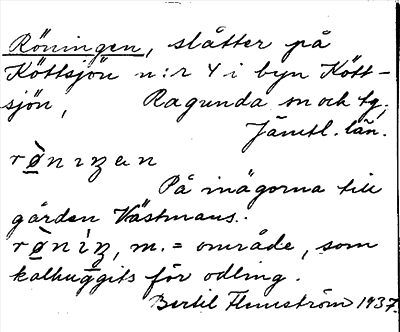 Röningen, slåtter på
Köttsjön n:r 4 i byn Kött-
sjön, Ragunda sn och tg,
Jämtl. län.
rø̀nıŋen
På inägorna till
gården Västmans.
rø̀nìŋ, m. = område, som
kalhuggits för odling.
Bertil Flemström 1937.